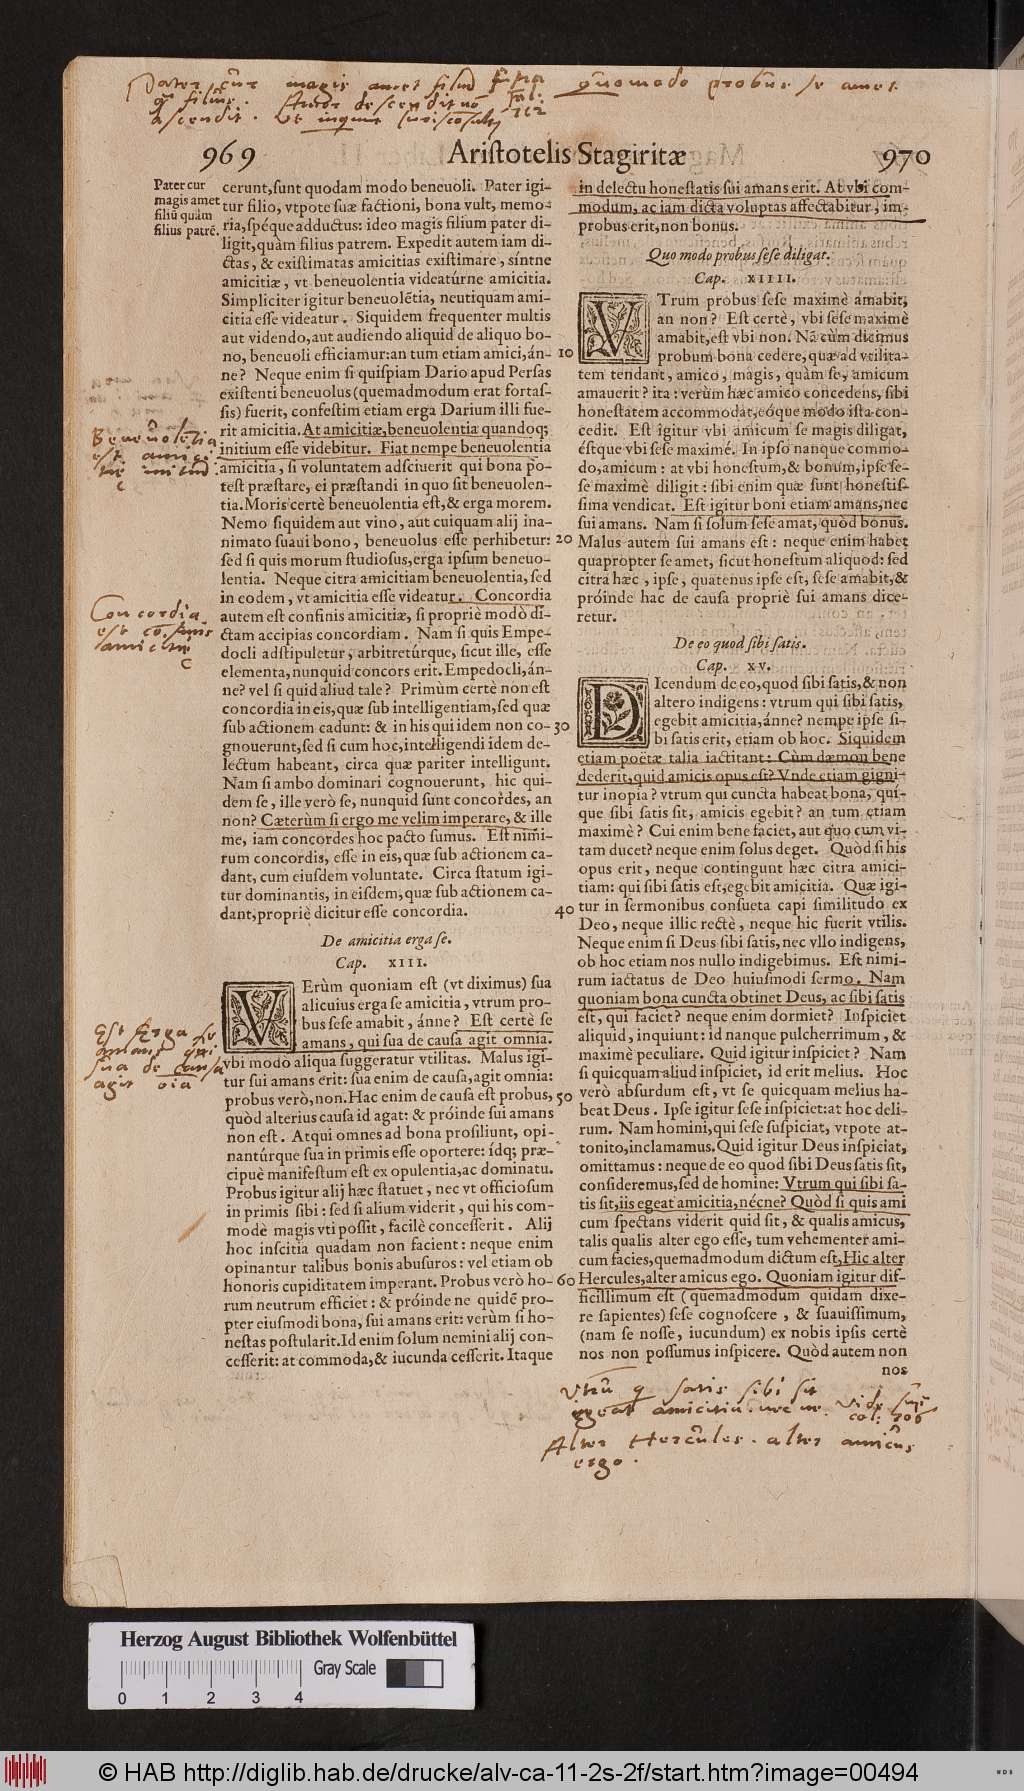 Pater cur magis amet filiū
q̃ filius. Amor descendit nō
ascendit. Ut inquiunt Iurisconsulti
Quomodo probus se amet
969 Aristotelis Stagiritæ 970
Pater cur
magis amet
filiū quàm
filius patrē.
cerunt, sunt quodam modo beneuoli. Pater igi-
tur filio, vtpote suæ factioni, bona vult, memo-
ria, spéque adductus: ideo magis filium pater di-
ligit, quàm filius patrem. Expedit autem iam di-
ctas, & existimatas amicitias existimare, síntne
amicitiæ, vt beneuolentia videatúrne amicitia.
Simpliciter igitur beneuolētia, neutiquam ami-
citia esse videatur. Siquidem frequenter multis
aut videndo, aut audiendo aliquid de aliquo bo-
no, beneuoli efficiamur: an tum etiam amici, án-
ne? Neque enim si quispiam Dario apud Persas
existenti beneuolus (quemadmodum erat fortas-
sis) fuerit, confestim etiam erga Darium illi fue-
rit amicitia. At amicitiæ, beneuolentia quandoq;
initium esse videbitur. Fiat nempe beneuolentia
amicitia, si voluntatem adsciuerit qui bona po-
test præstare, ei præstandi in quo sit beneuolen-
tia. Moris certè beneuolentia est, & erga morem.
Nemo siquidem aut vino, aut cuiquam alij ina-
nimato suaui bono, beneuolus esse perhibetur:
sed si quis morum studiosus, erga ipsum beneuo-
lentia. Neque citra amicitiam beneuolentia, sed
in eodem, vt amicitia esse videatur. Concordia
autem est confinis amicitiæ, si propriè modò di-
ctam accipias concordiam. Nam si quis Empe-
docli adstipuletur, arbitretúrque, sicut ille, esse
elementa, nunquid concors erit. Empedocli, án-
ne? vel si quid aliud tale? Primùm certè non est
concordia in eis, quæ sub intelligentiam, sed quæ
sub actionem cadunt: & in his qui idem non co-
gnouerunt, sed si cum hoc, intelligendi idem de-
lectum habeant, circa quæ pariter intelligunt.
Nam si ambo dominari cognouerunt, hic qui-
dem se, ille verò se, nunquid sunt concordes, an
non? Cæterùm si ergo me velim imperare, & ille
me, iam concordes hoc pacto sumus. Est nimi-
rum concordis, esse in eis, quæ sub actionem ca-
dant, cum eiusdem voluntate. Circa statum igi-
tur dominantis, in eisdem, quæ sub actionem ca-
dant, propriè dicitur esse concordia.
De amicitia erga se.
Cap. XIII.
VErùm quoniam est (vt diximus) sua
alicuius erga se amicitia, vtrum pro-
bus sese amabit, ánne? Est certè se
amans, qui sua de causa agit omnia.
vbi modò aliqua suggeratur vtilitas. Malus igi-
tur sui amans erit: sua enim de causa, agit omnia:
probus verò, non. Hac enim de causa est probus,
quòd alterius causa id agat: & próinde sui amans
non est. Atqui omnes ad bona prosiliunt, opi-
nantúrque sua in primis esse oportere: ídq; præ-
cipuè manifestum est ex opulentia, ac dominatu.
Probus igitur alij hæc statuet, nec vt officiosum
in primis sibi: sed si alium viderit, qui his com-
modè magis vti possit, facilè concesserit. Alij
hoc inscitia quadam non facient: neque enim
opinantur talibus bonis abusuros: vel etiam ob
honoris cupiditatem imperant. Probus verò ho-
rum neutrum efficiet: & próinde ne quidē pro-
pter eiusmodi bona, sui amans erit: verùm si ho-
nestas postularit. Id enim solum nemini alij con-
cesserit: at commoda, & iucunda cesserit. Itaque
Beneuolētia
est amici
tiæ initiū.
Concordia
est cōfinis
amicitiæ
Est Erga se
amans qui
sua de causa
agit oīa
10
20
30
40
50
60
in delectu honestatis sui amans erit. At vbi com-
modum, ac iam dicta voluptas affectabitur, im-
probus erit, non bonus.
Quo modo probus sese diligat.
Cap. XIIII.
VTrum probus sese maximè amabit,
an non? Est certè, vbi sese maximè
amabit, est vbi non. Nā cùm dicimus
probum bona cedere, quæ ad vtilita-
tem tendant, amico, magis, quàm se, amicum
amauerit? ita: verùm hæc amico concedens, sibi
honestatem accommodat, eóque modo ista con-
cedit. Est igitur vbi amicum se magis diligat,
éstque vbi sese maximè. In ipso nanque commo-
do, amicum: at vbi honestum, & bonum, ipse se-
se maximè diligit: sibi enim quæ sunt honestis-
sima vendicat. Est igitur boni etiam amans, nec
sui amans. Nam si solum sese amat, quòd bonus.
Malus autem sui amans est: neque enim habet
quapropter se amet, sicut honestum aliquod: sed
citra hæc, ipse, quatenus ipse est, sese amabit, &
próinde hac de causa propriè sui amans dice-
retur.
De eo quod sibi satis.
Cap. XV.
DIcendum de eo, quod sibi satis, & non
altero indigens: vtrum qui sibi satis,
egebit amicitia, ánne? nempe ipse si-
bi satis erit, etiam ob hoc. Siquidem
etiam poëtæ talia iactitant: Cùm dæmon bene
dederit, quid amicis opus est? Vnde etiam gigni-
tur inopia? vtrum qui cuncta habeat bona, quí-
que sibi satis sit, amicis egebit? an tum etiam
maximè? Cui enim bene faciet, aut quo cum vi-
tam ducet? neque enim solus deget. Quòd si his
opus erit, neque contingunt hæc citra amici-
tiam: qui sibi satis est, egebit amicitia. Quæ igi-
tur in sermonibus consueta capi similitudo ex
Deo, neque illic rectè, neque hic fuerit vtilis.
Neque enim si Deus sibi satis, nec vllo indigens,
ob hoc etiam nos nullo indigebimus. Est nimi-
rum iactatus de Deo huiusmodi sermo. Nam
quoniam bona cuncta obtinet Deus, ac sibi satis
est, qui faciet? neque enim dormiet? Inspiciet
aliquid, inquiunt: id nanque pulcherrimum, &
maximè peculiare. Quid igitur inspiciet? Nam
si quicquam aliud inspiciet, id erit melius. Hoc
verò absurdum est, vt se quicquam melius ha-
beat Deus. Ipse igitur sese inspiciet: at hoc deli-
rum. Nam homini, qui sese suspiciat, vtpote at-
tonito, inclamamus. Quid igitur Deus inspiciat,
omittamus: neque de eo quod sibi Deus satis sit,
consideremus, sed de homine: Vtrum qui sibi sa-
tis sit, iis egeat amicitia, nécne? Quòd si quis ami
cum spectans viderit quid sit, & qualis amicus,
talis qualis alter ego esse, tum vehementer ami-
cum facies, quemadmodum dictum est, Hic alter
Hercules, alter amicus ego. Quoniam igitur dif-
ficillimum est (quemadmodum quidam dixe-
re sapientes) sese cognoscere, & suauissimum,
(nam se nosse, iucundum) ex nobis ipsis certè
nos non possumus inspicere. Quòd autem non
nos
Vtrū q satis sibi sit
egeat amicitia. nec ne. Vide
col: 306
Alter Hercules. alter amicus
ergo.
Herzog August Bibliothek Wolfenbüttel
Gray Scale
0 1 2 3 4
© HAB http://diglib.hab.de/drucke/alv-ca-11-2s-2f/start.htm?image=00494